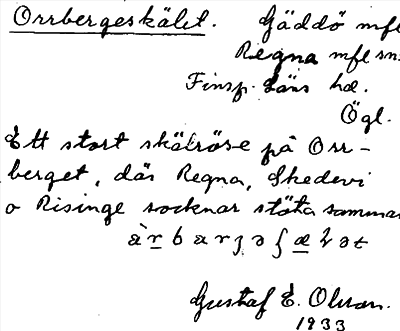 Orrbergeskälet. Gäddö mfl
Regna mfl sn.
Finsp. läns hd.
Ögl.
Ett stort skälröse på Orr-
berget, där Regna, Skedevi
o Risinge socknar stöta samman
Gustaf E. Olsson.
1933